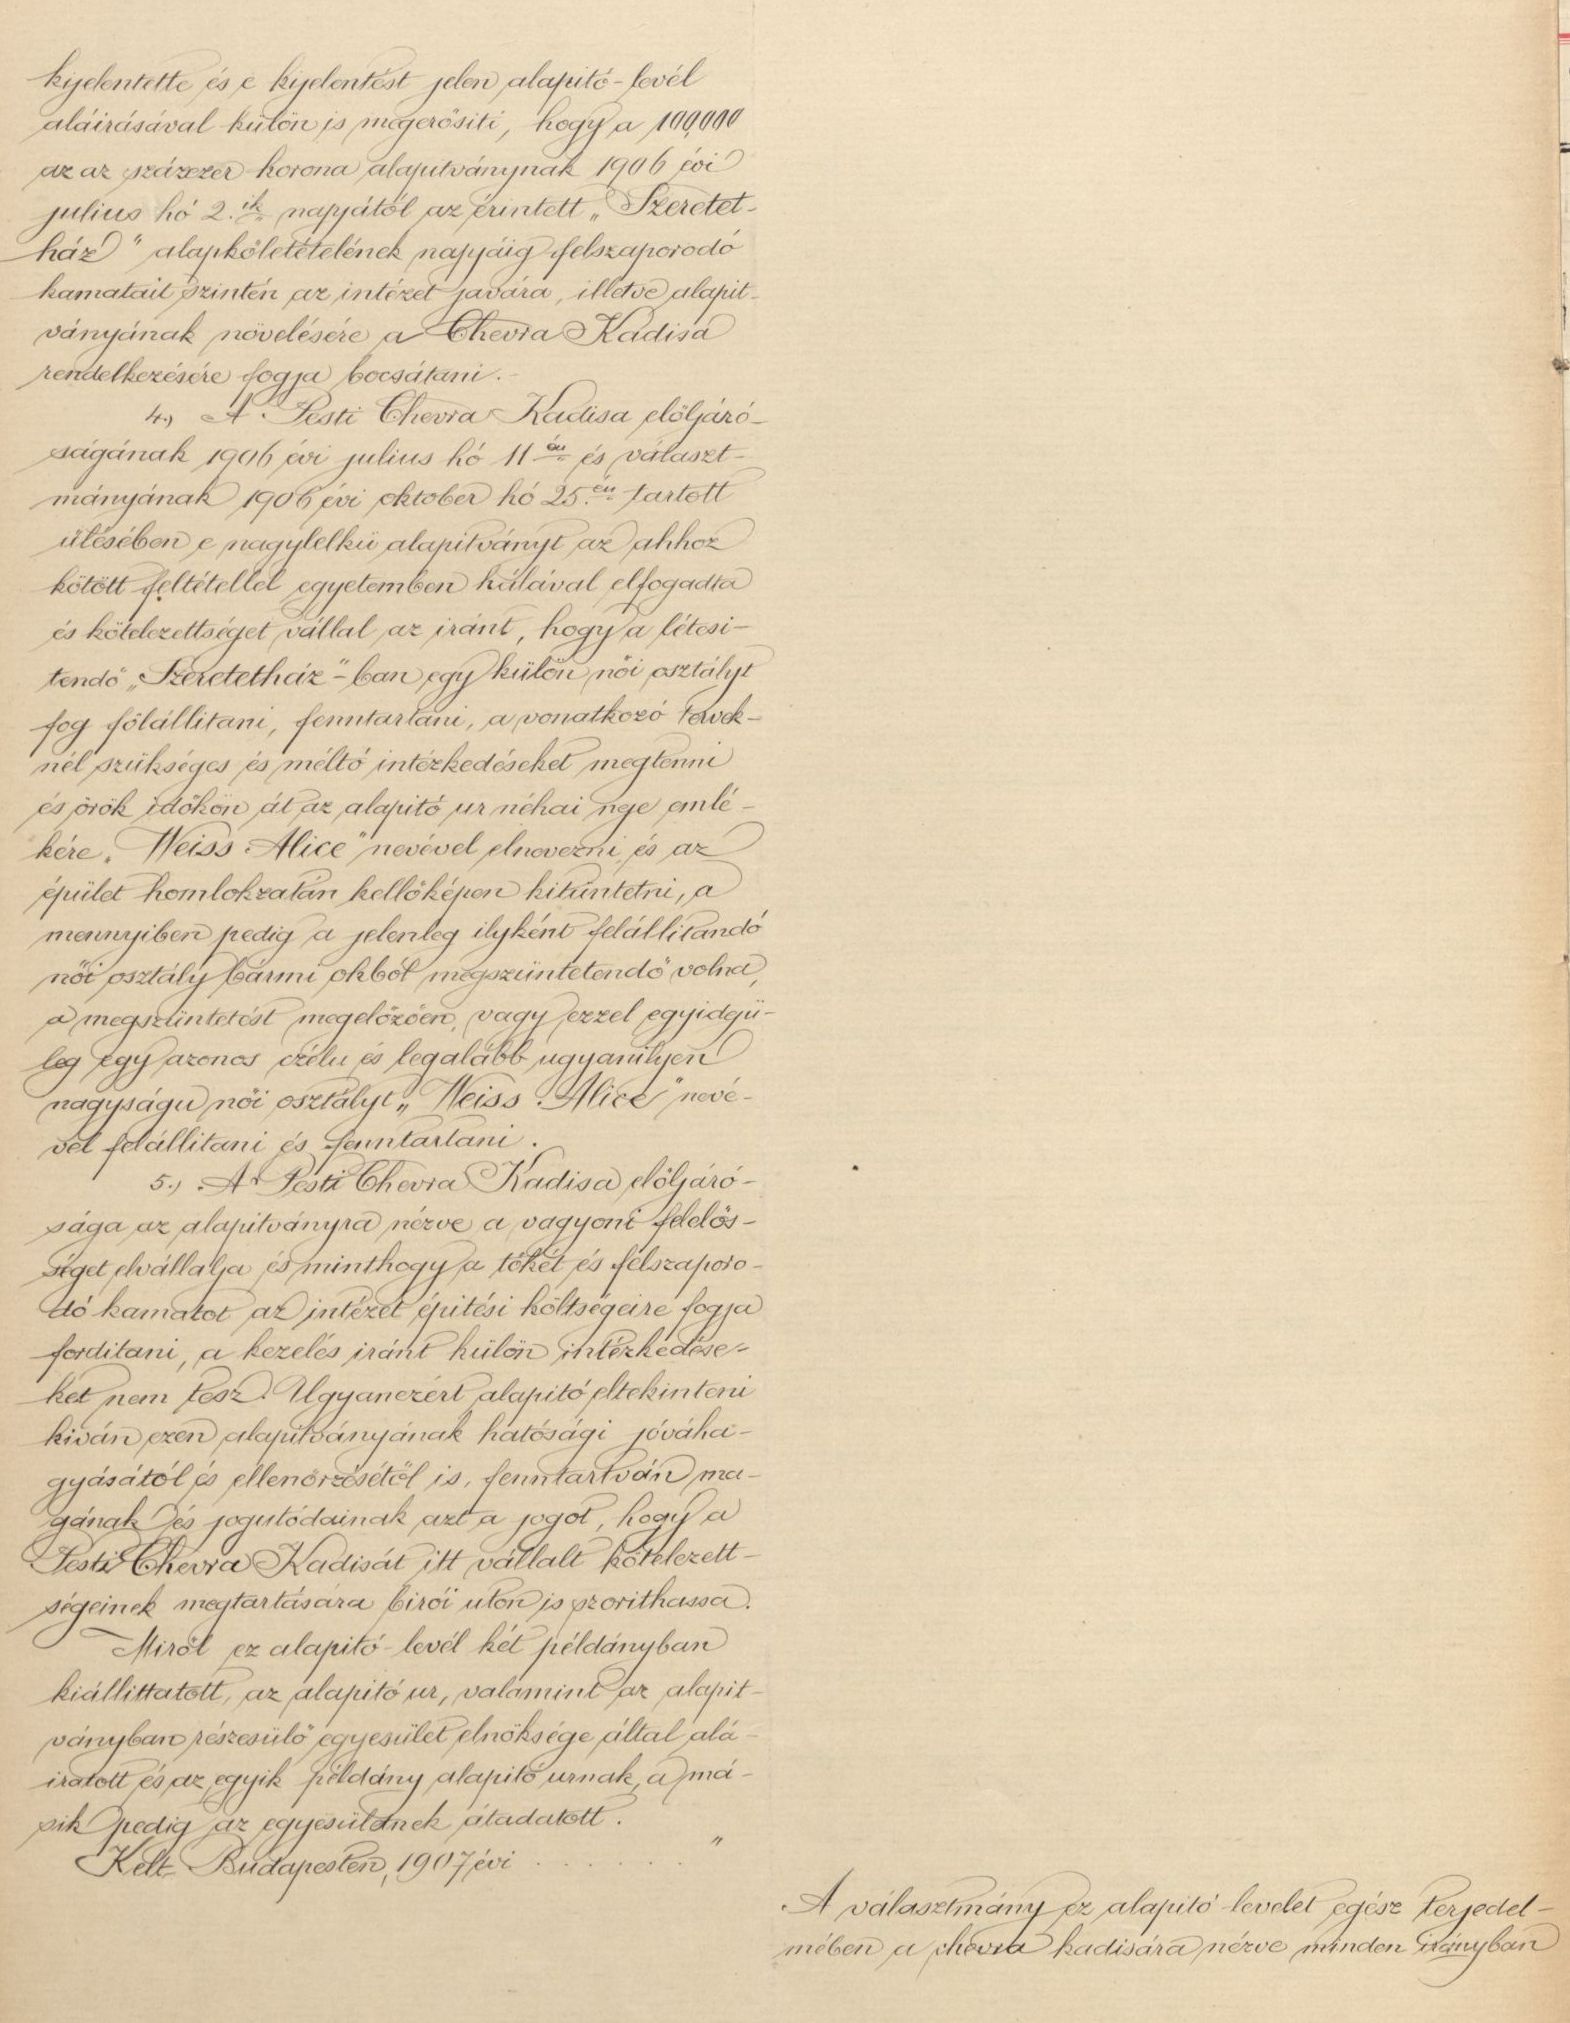 kijelentette és e kijelentést jelen alapitó-levél
aláirásával külön is megerősiti, hogy a 100,000
az az százezer korona alapitványnak 1906 évi
julius hó 2.ik napjától az érintett „Szeretet-
ház" alapkőletételének napjáig felszaporodó
kamatait szintén az intézet javára, illetve alapit-
ványának növelésére a Chevra Kadisa
rendelkezésére fogja bocsátani.-
4.) A Pesti Chevra Kadisa előljáró-
ságának 1906 évi julius hó 11én és választ-
mányának 1906 évi oktober hó 25.én tartott
ülésében e nagylelkü alapitványt az ahhoz
kötött feltétellel egyetemben hálával elfogadta
és kötelezettséget vállal az iránt, hogy a létesi-
tendő „Szeretetház"-ban egy külön női osztályt
fog fölállitani, fenntartani, a vonatkozó tervek-
nél szükséges és méltó intézkedéseket megtenni
és örök időkön át az alapitó ur néhai neje emlé-
kére „Weiss Alice" nevével elnevezni és az
épület homlokzatán kellőképen kitüntetni, a
mennyiben pedig a jelenleg ilyként felállitandó
női osztály bármi okból megszüntetendő volna,
a megszüntetést megelőzően, vagy ezzel egyidejü-
leg egy azonos czélu és legalább ugyanilyen
nagyságu női osztályt „Weiss Alice" nevé-
vel felállitani és fenntartani.
5.) A Pesti Chevra Kadisa előljáró-
sága az alapitványra nézve a vagyoni felelős-
séget elvállalja és minthogy a tőkét és felszaporo-
dó kamatot az intézet épitési költségeire fogja
forditani, a kezelés iránt külön intézkedése-
ket nem tesz. Ugyanezért alapitó eltekinteni
kiván ezen alapitványának hatósági jóváha-
gyásától és ellenőrzésétől is, fenntartván ma-
gának és jogutódainak azt a jogot, hogy a
Pesti Chevra Kadisát itt vállalt kötelezett-
ségeinek megtartására birói uton is szorithassa.
Miről ez alapitó-levél két példányban
kiállittatott, az alapitó ur, valamint az alapit-
ványban részesülő egyesület elnöksége által alá-
iratott és az egyik példány alapitó urnak, a má-
sik pedig az egyesületnek átadatott.
Kelt Budapesten, 1907 évi . . . . . . "
A választmány ez alapitó levelet egész terjedel-
mében a chevra kadisára nézve minden irányban